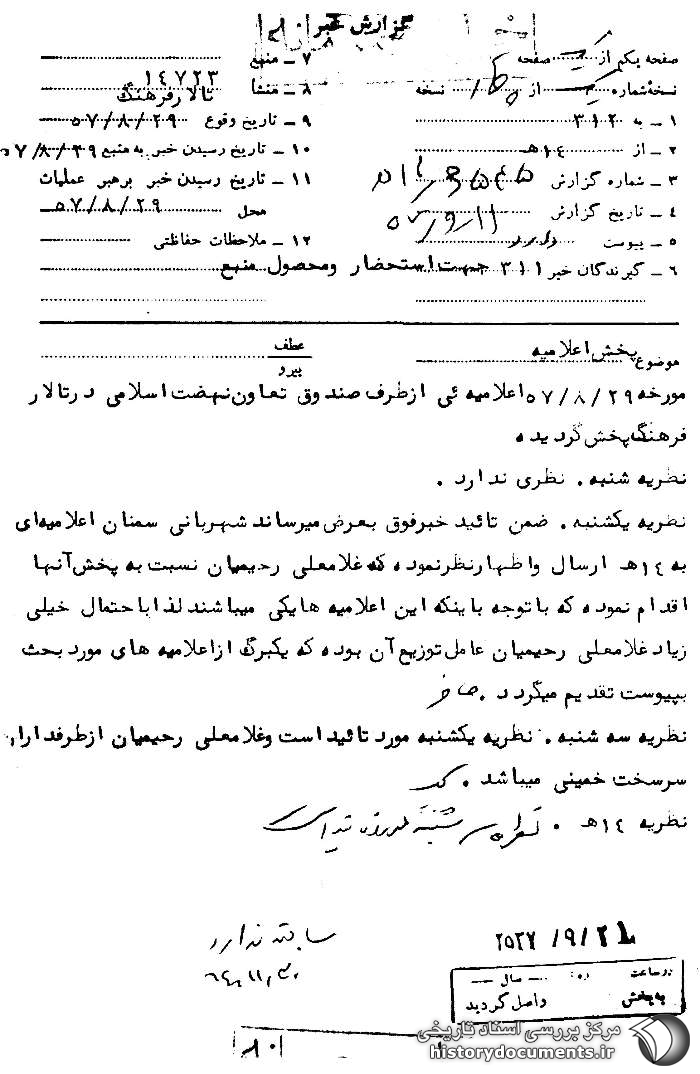 گزارش خبر
صفحه یکم از یک صفحه
نسخه شماره از نسخه
۱ ـ به ۳۱۲
۲ ـ از ۱۴هـ
۳ ـ شماره گزارش
۴ ـ تاریخ گزارش ۵۷/۹/۱۱
۵ ـ پیوست دارد
۶ ـ گیرندگان خبر ۳۱۱ جهت استحضار ومحصول منبع
۷ ـ منبع ۱۴۷۲۳
۸ ـ منشأ تالار فرهنگ
۹ ـ تاریخ وقوع ۵۷/۸/۲۹
۱۰ ـ تاریخ رسیدن خبر به منبع ۵۷/۸/۲۹
۱۱ ـ تاریخ رسیدن خبر برهبر عملیات
محل ۵۷/۸/۲۹
۱۲ ـ ملاحظات حفاظتی
موضوع پخش اعلامیه
عطف
پیرو
مورخه ۵۷/۸/۲۹ اعلامیه ئی ازطرف صندوق تعاون نهضت اسلامی درتالار
فرهنگ پخش گردیده
نظریه شنبه . نظری ندارد .
نظریه یکشنبه . ضمن تائید خبرفوق بعرض میرساند شهربانی سمنان اعلامیه‌ای
به ۱۴هـ ارسال واظهارنظرنموده که غلامعلی رحیمیان نسبت به پخش آنها
اقدام نموده که باتوجه باینکه این اعلامیه هایکی میباشند لذا باحتمال خیلی
زیاد غلامعلی رحیمیان عامل توزیع آن بوده که یکبرگ ازاعلامیه های مورد بحث
بپیوست تقدیم میگردد .
نظریه سه شنبه . نظریه یکشنبه مورد تائید است وغلامعلی رحیمیان ازطرفداران
سرسخت خمینی میباشد .
نظریه ۱۴هـ . نظریه سه شنبه مورد تائید است
سابقه ندارد
۲۵۳۷/۹/۲۱
در ساعت روز سال
به بخش واصل گردید
مرکز بررسی اسناد تاریخی
historydocuments.ir